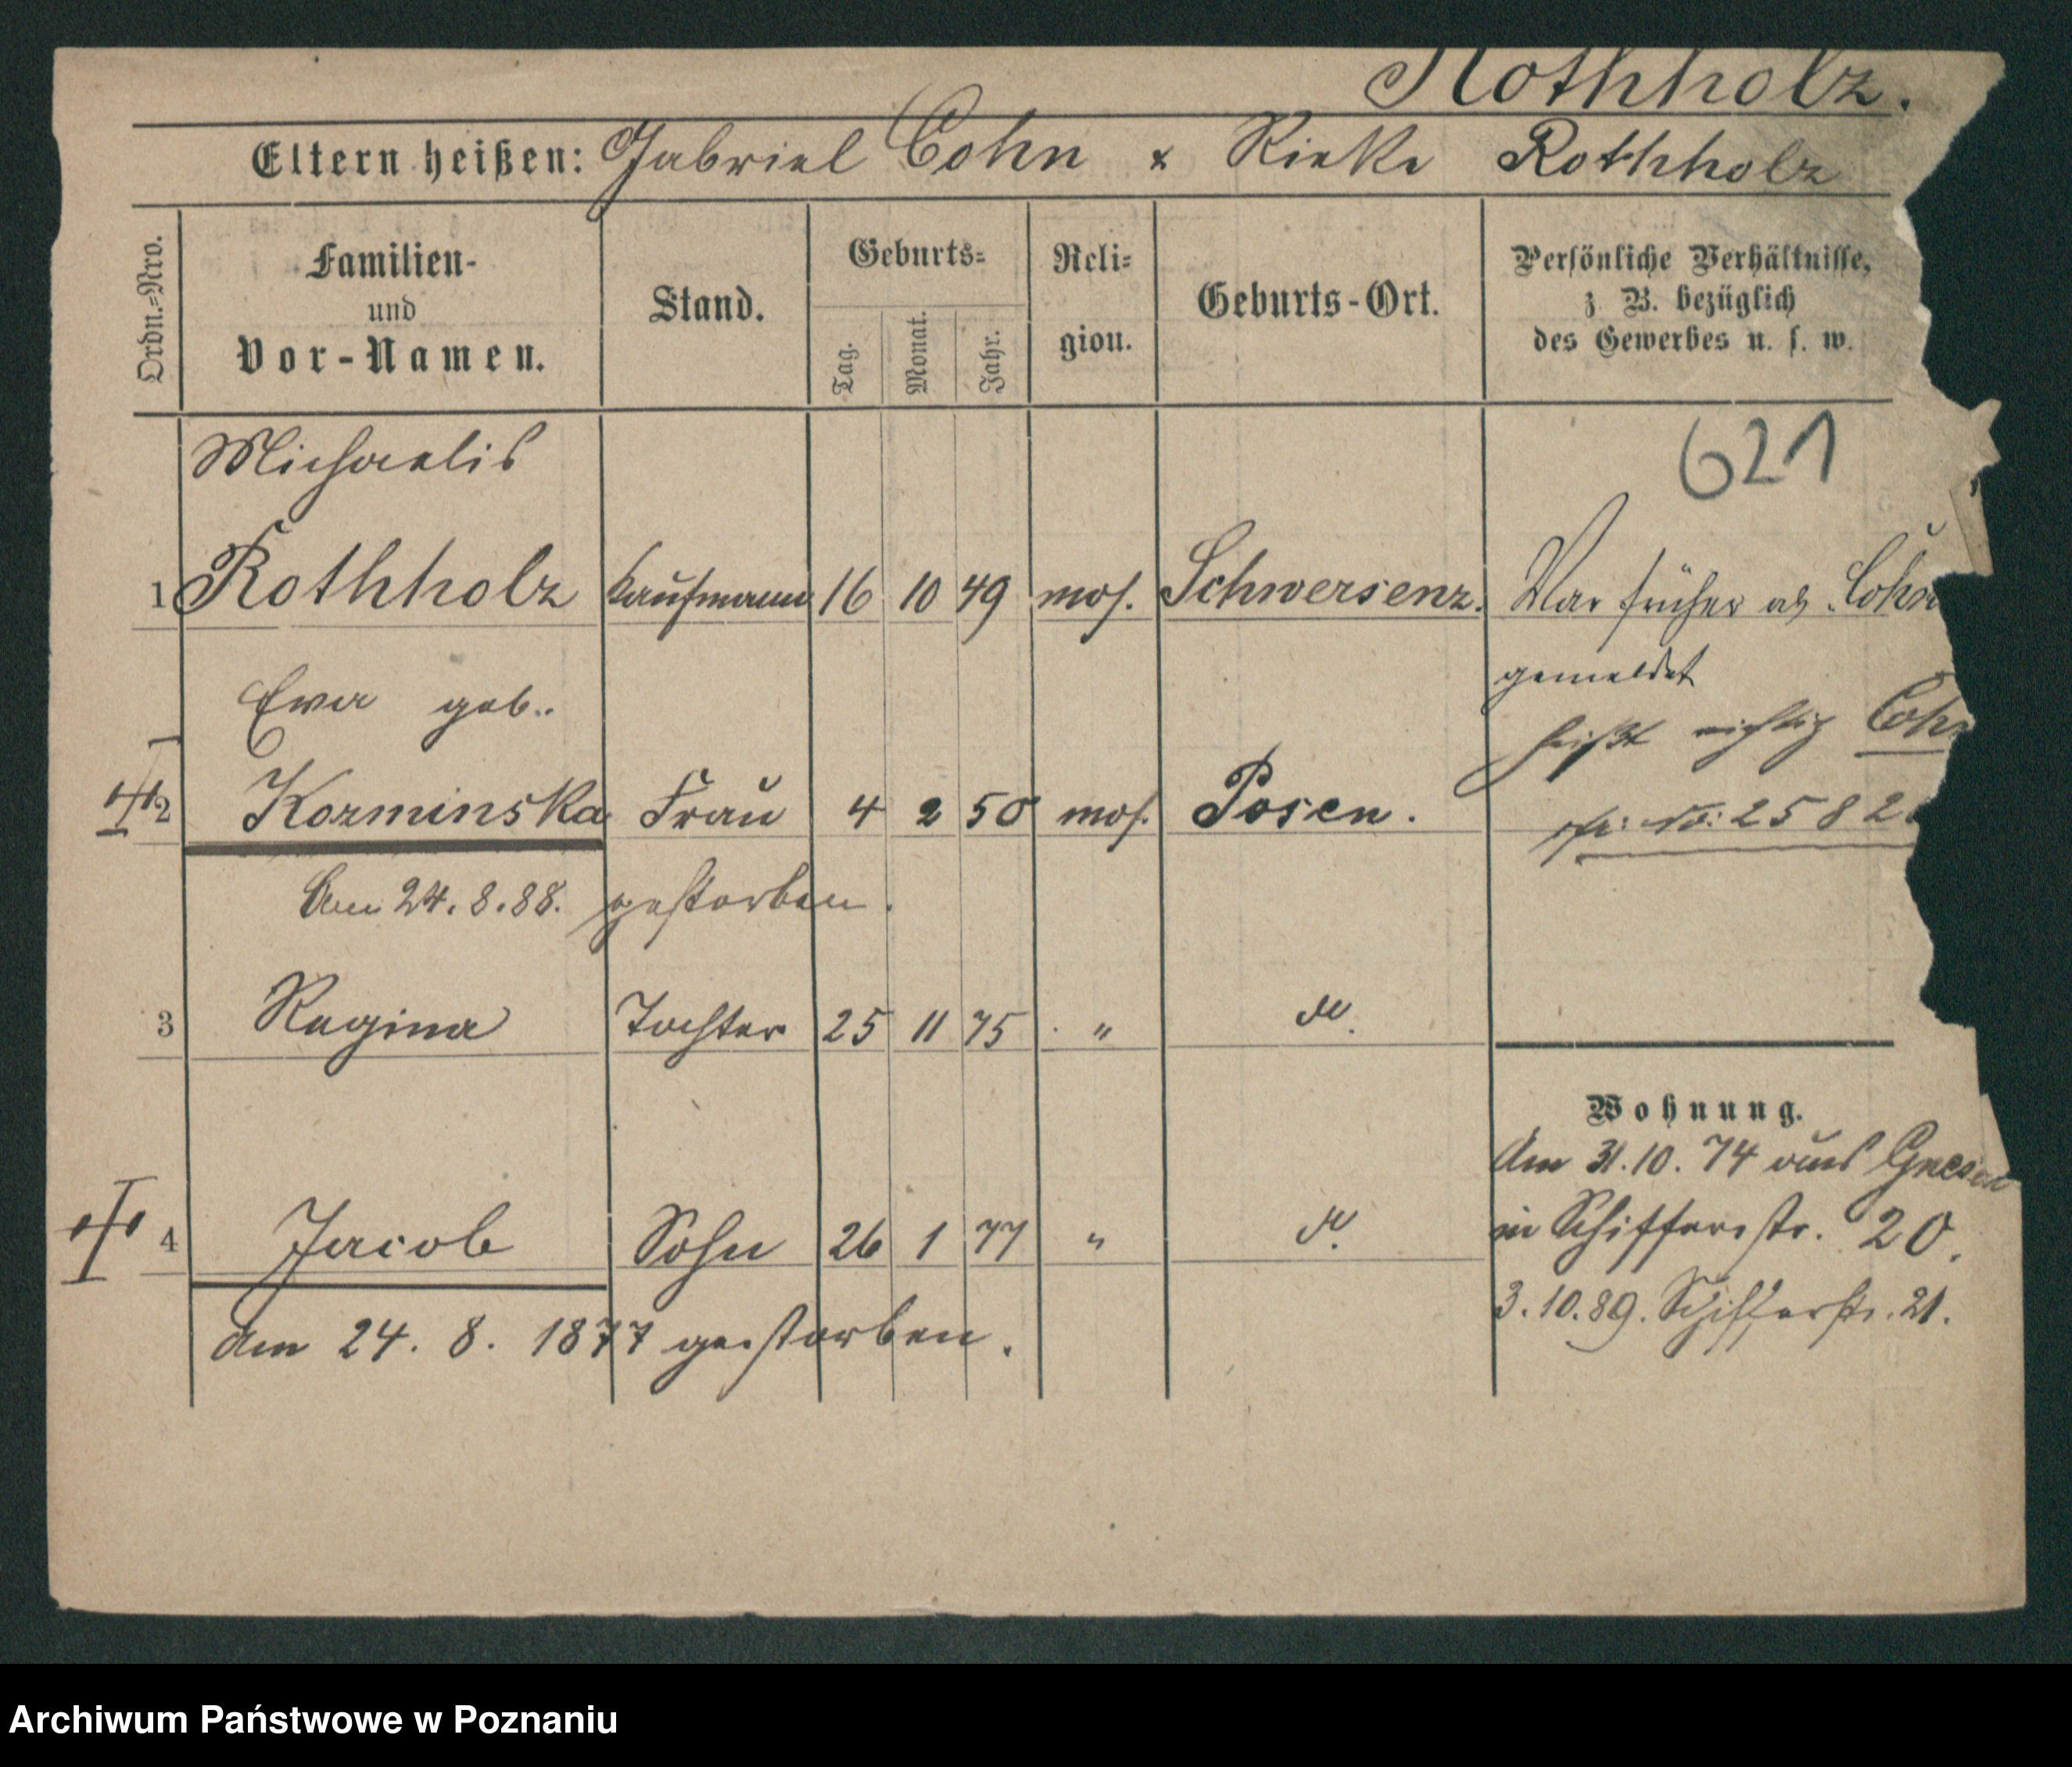 Rothholz.
Eltern heißen: Gabriel Cohn & Rieke Rothholz
Ordn.=Nro.
Familien-
und
Vor-Namen.
Stand.
Geburts=
Tag.
Monat.
Jahr.
Reli=
gion.
Geburts-Ort.
Persönliche Verhältnisse,
z. B. bezüglich
des Gewerbes u. s. w.
621
Michaelis
1 Rothholz Kaufmann 16 10 49 mos. Schwersenz. War früher als Cohn
gemeldet
Ewa geb.
heißt richtig Cohn
2 Kozminska Frau 4 2 50 mos. Posen. No: 2582
Am 24.8.88. gestorben.
3 Regina Tochter 25 11 75 " do.
Wohnung.
Am 31.10.74 aus Gnesen
4 Jacob Sohn 26 1 77 " do. in Schifferstr. 20.
3.10.89. Schifferstr. 21.
Am 24. 8. 1877 gestorben.
Archiwum Państwowe w Poznaniu